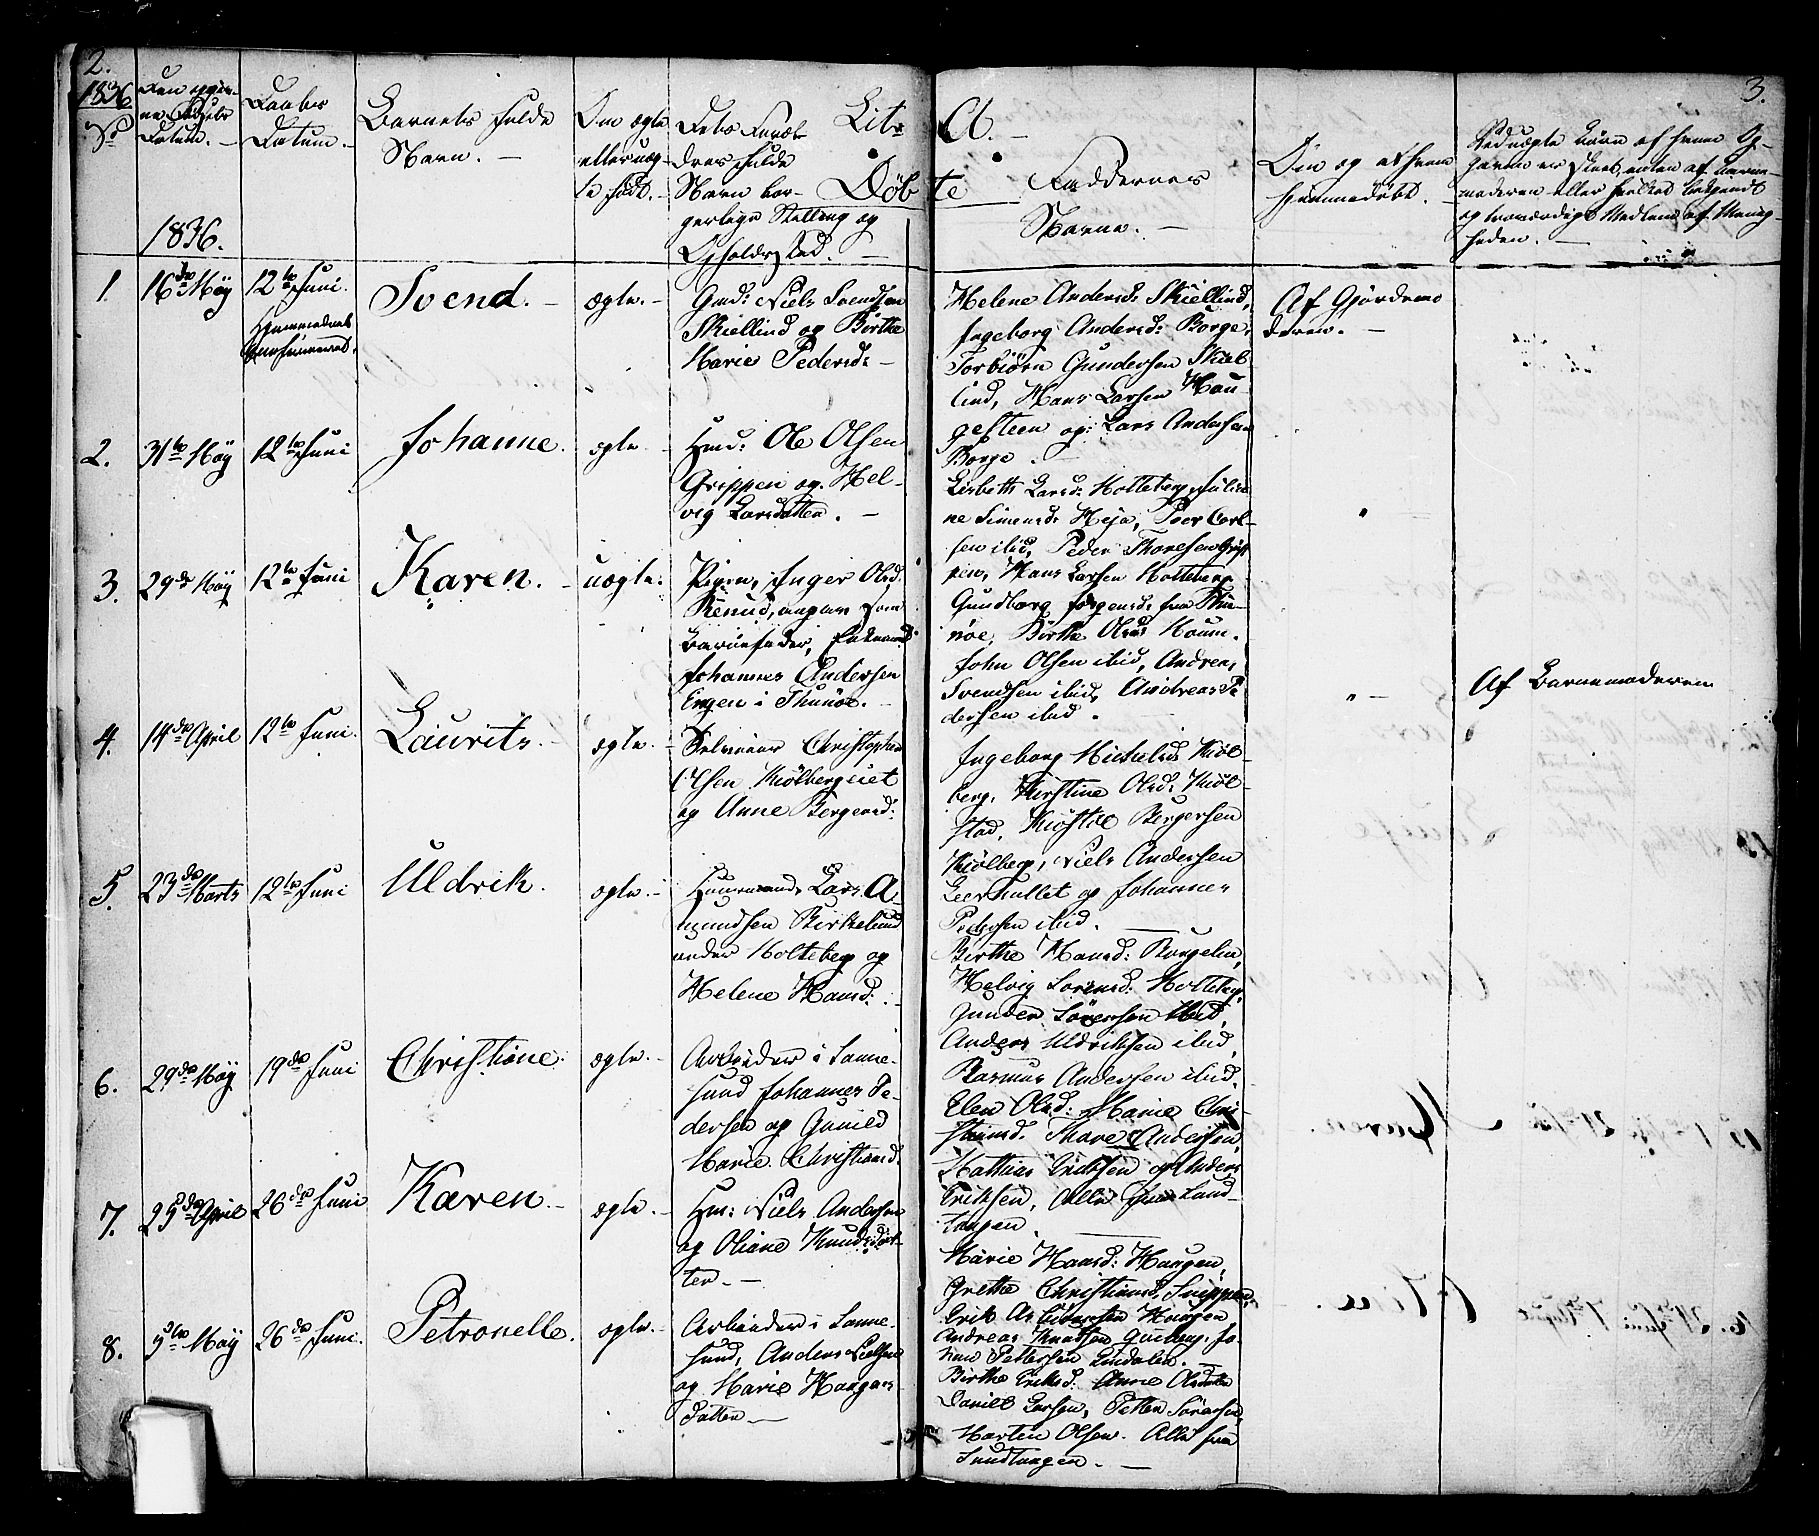 2.
1836
No
Den opgiv-
ne Fødsels
Datum. -
Daabs
Datum. -
Barnets fulde
Navn. -
Om ægte
eller uæg-
te født. -
Dets Foræl-
dres fulde
Navn bor-
gerlige Stilling og
Opholdssted. -
Litr A. -
Døbte
3.
Faddernes
Navne. -
Om og af hvem
hjemmedøbt. -
Ved uægte Børn af hvem Op-
gaven er skeet, enten af Barne-
moderen eller hvilket bekjendt
og troværdigt Medlem af Menig-
heden. -
1836.
1.
16de Maÿ
12te Juni.
Hjemmedaab
confirmeret.
Svend. -
ægte. -
Gmd: Niels Svendsen
Skiellind og Birthe
Marie Pedersd: -
Helene Andersd: Skiellind,
Ingeborg Andersd: Borge,
Torbiørn Gundersen Skiel-
lind, Hans Larsen Hau-
gesteen og Lars Andersen
Borge. -
Af Gjordemo
deren. -
2.
31te Maÿ
12te Juni
Johanne.
ægte. -
Hmd: Ole Olsen
Grippen og Hel-
vig Larsdatter. -
Lisbeth Larsd: Holteberg, Julia-
ne Simensd: Heja, Peer Carl-
sen ibid, Peder Thoresen Grip
pen, Hans Larsen Holteberg.
3.
29de Maÿ
12te Juni
Karen. -
uægte.
Pigen, Inger Olsd:
angav som
Barnefader, Enkemand
Johannes Andersen
Engen i Thunøe. -
Gundborg Jørgensd: fra Thu-
nøe, Birthe Olsd: Houm.
John Olsen ibid, Andreas
Svendsen ibid, Andreas Pe
dersen ibid.
" -
Af Barnemoderen
4.
14de April
12te Juni.
Laurits. -
ægte. -
Selveier Christopher
Olsen Kiølberg
og Anne Bergersd:
Ingeborg Michelsd: Kiøl-
berg, Kirstine Olsd: Kiøl-
stad, Kiøstol Bergersen
Kiølberg, Niels Andersen
og Johannes
Pedersen ibid.
5.
23de Marts
12te Juni
Uldrik.
ægte. -
Huusmand Lars A-
mundsen Birkelund
under Holteberg og
Helene Hansd: -
Birthe Hansd: Borgelin,
Helvig Lorensd: Holteberg,
Gunder Sørensen ibid,
Anders Uldriksen ibid,
Rasmus Andersen ibid.
6.
29de Maÿ
19de Juni
Christiane.
ægte. -
Arbeider i Sanne-
sund Johannes Pe-
dersen og Gunild
Marie Christiansd.
Elen Olsd: Marie Chri-
stiansd. Thore Andersen,
Mathias Eriksen og Anders
Eriksen, Alle fra Sand-
tangen.
7.
25de April
26de Juni
Karen. -
ægte. -
Hm: Niels Andersen
og Oliane Knudsdat-
ter. -
Marie Hansd: Haugen,
Grethe Christiansd. Snippen,
Erik Haugen
Andreas Knudsen Jo-
han Pettersen Lindalen. -
8.
5te Maÿ
26de Juni.
Petronelle.
ægte. -
Arbeider i Sanne-
sund, Anders Nielsen
og Marie Haagens-
datter. -
Birthe Eriksd: Anne Olsdatter
Daniel Larsen, Petter Sørensen,
Morten Olsen. Alle fra
Sandtangen. -